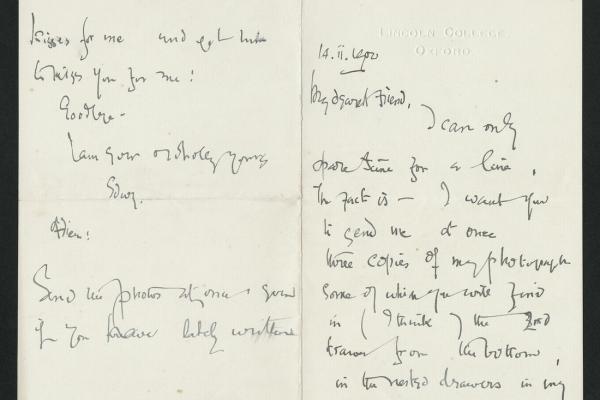 LINCOLN COLLEGE,
OXFORD.
14.ii.1900
My dearest Friend,
I can only
spare time for a line.
The fact is — I want you
to send me at once
three copies of my photograph
some of which you will find
in (I think) the 2nd
drawer from the bottom,
in the nested drawers in my
kisses for me and get him
to kiss you for me!
Goodbye —
I am ever & wholly yours
Edwy.
Adieu!
Send the photos at once & send
if you have lately written